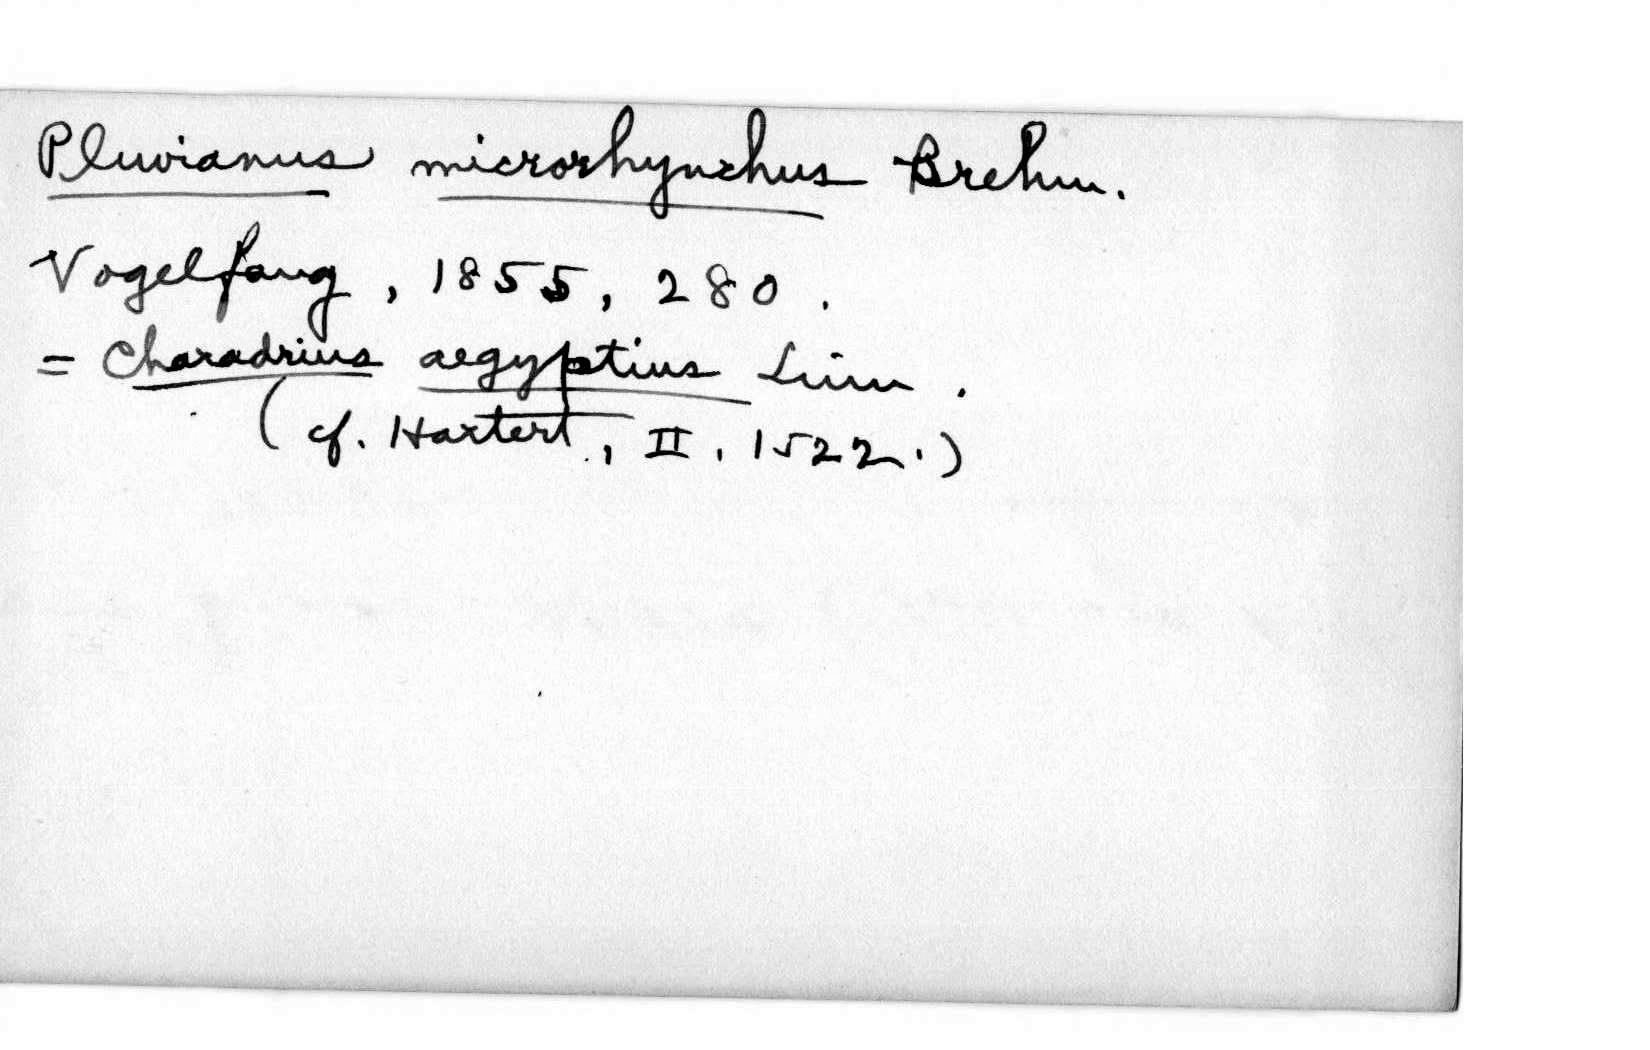 Pluvianus microrhynchus Brehm.
Vogelfang, 1855, 280.
= Charadrius aegyptius Linn.
(cf. Hartert, II, 1522.)